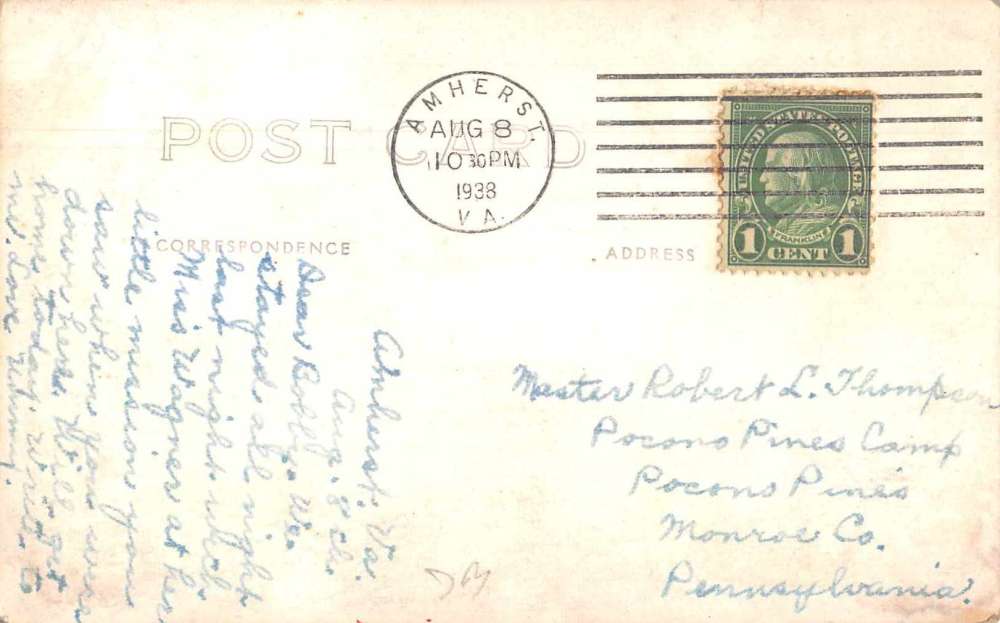 POST CARD
AMHERST.
AUG 8
10 30 PM
1938
VA.
UNITED STATES POSTAGE
FRANKLIN
1 CENT 1
CORRESPONDENCE
ADDRESS
Amherst. Va.
Aug. 8th.
Dear Bobby. We
stayed all night
last night with
Miss Wagner at her
little mission you
saw when you were
down here. Will get
home today. Write to
me. Love
Master Robert L. Thompson
Pocono Pines Camp
Pocono Pines
Monroe Co.
Pennsylvania.